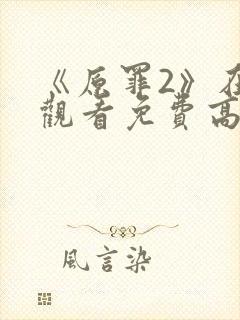 《原罪2》在
觀看免費高
風言染